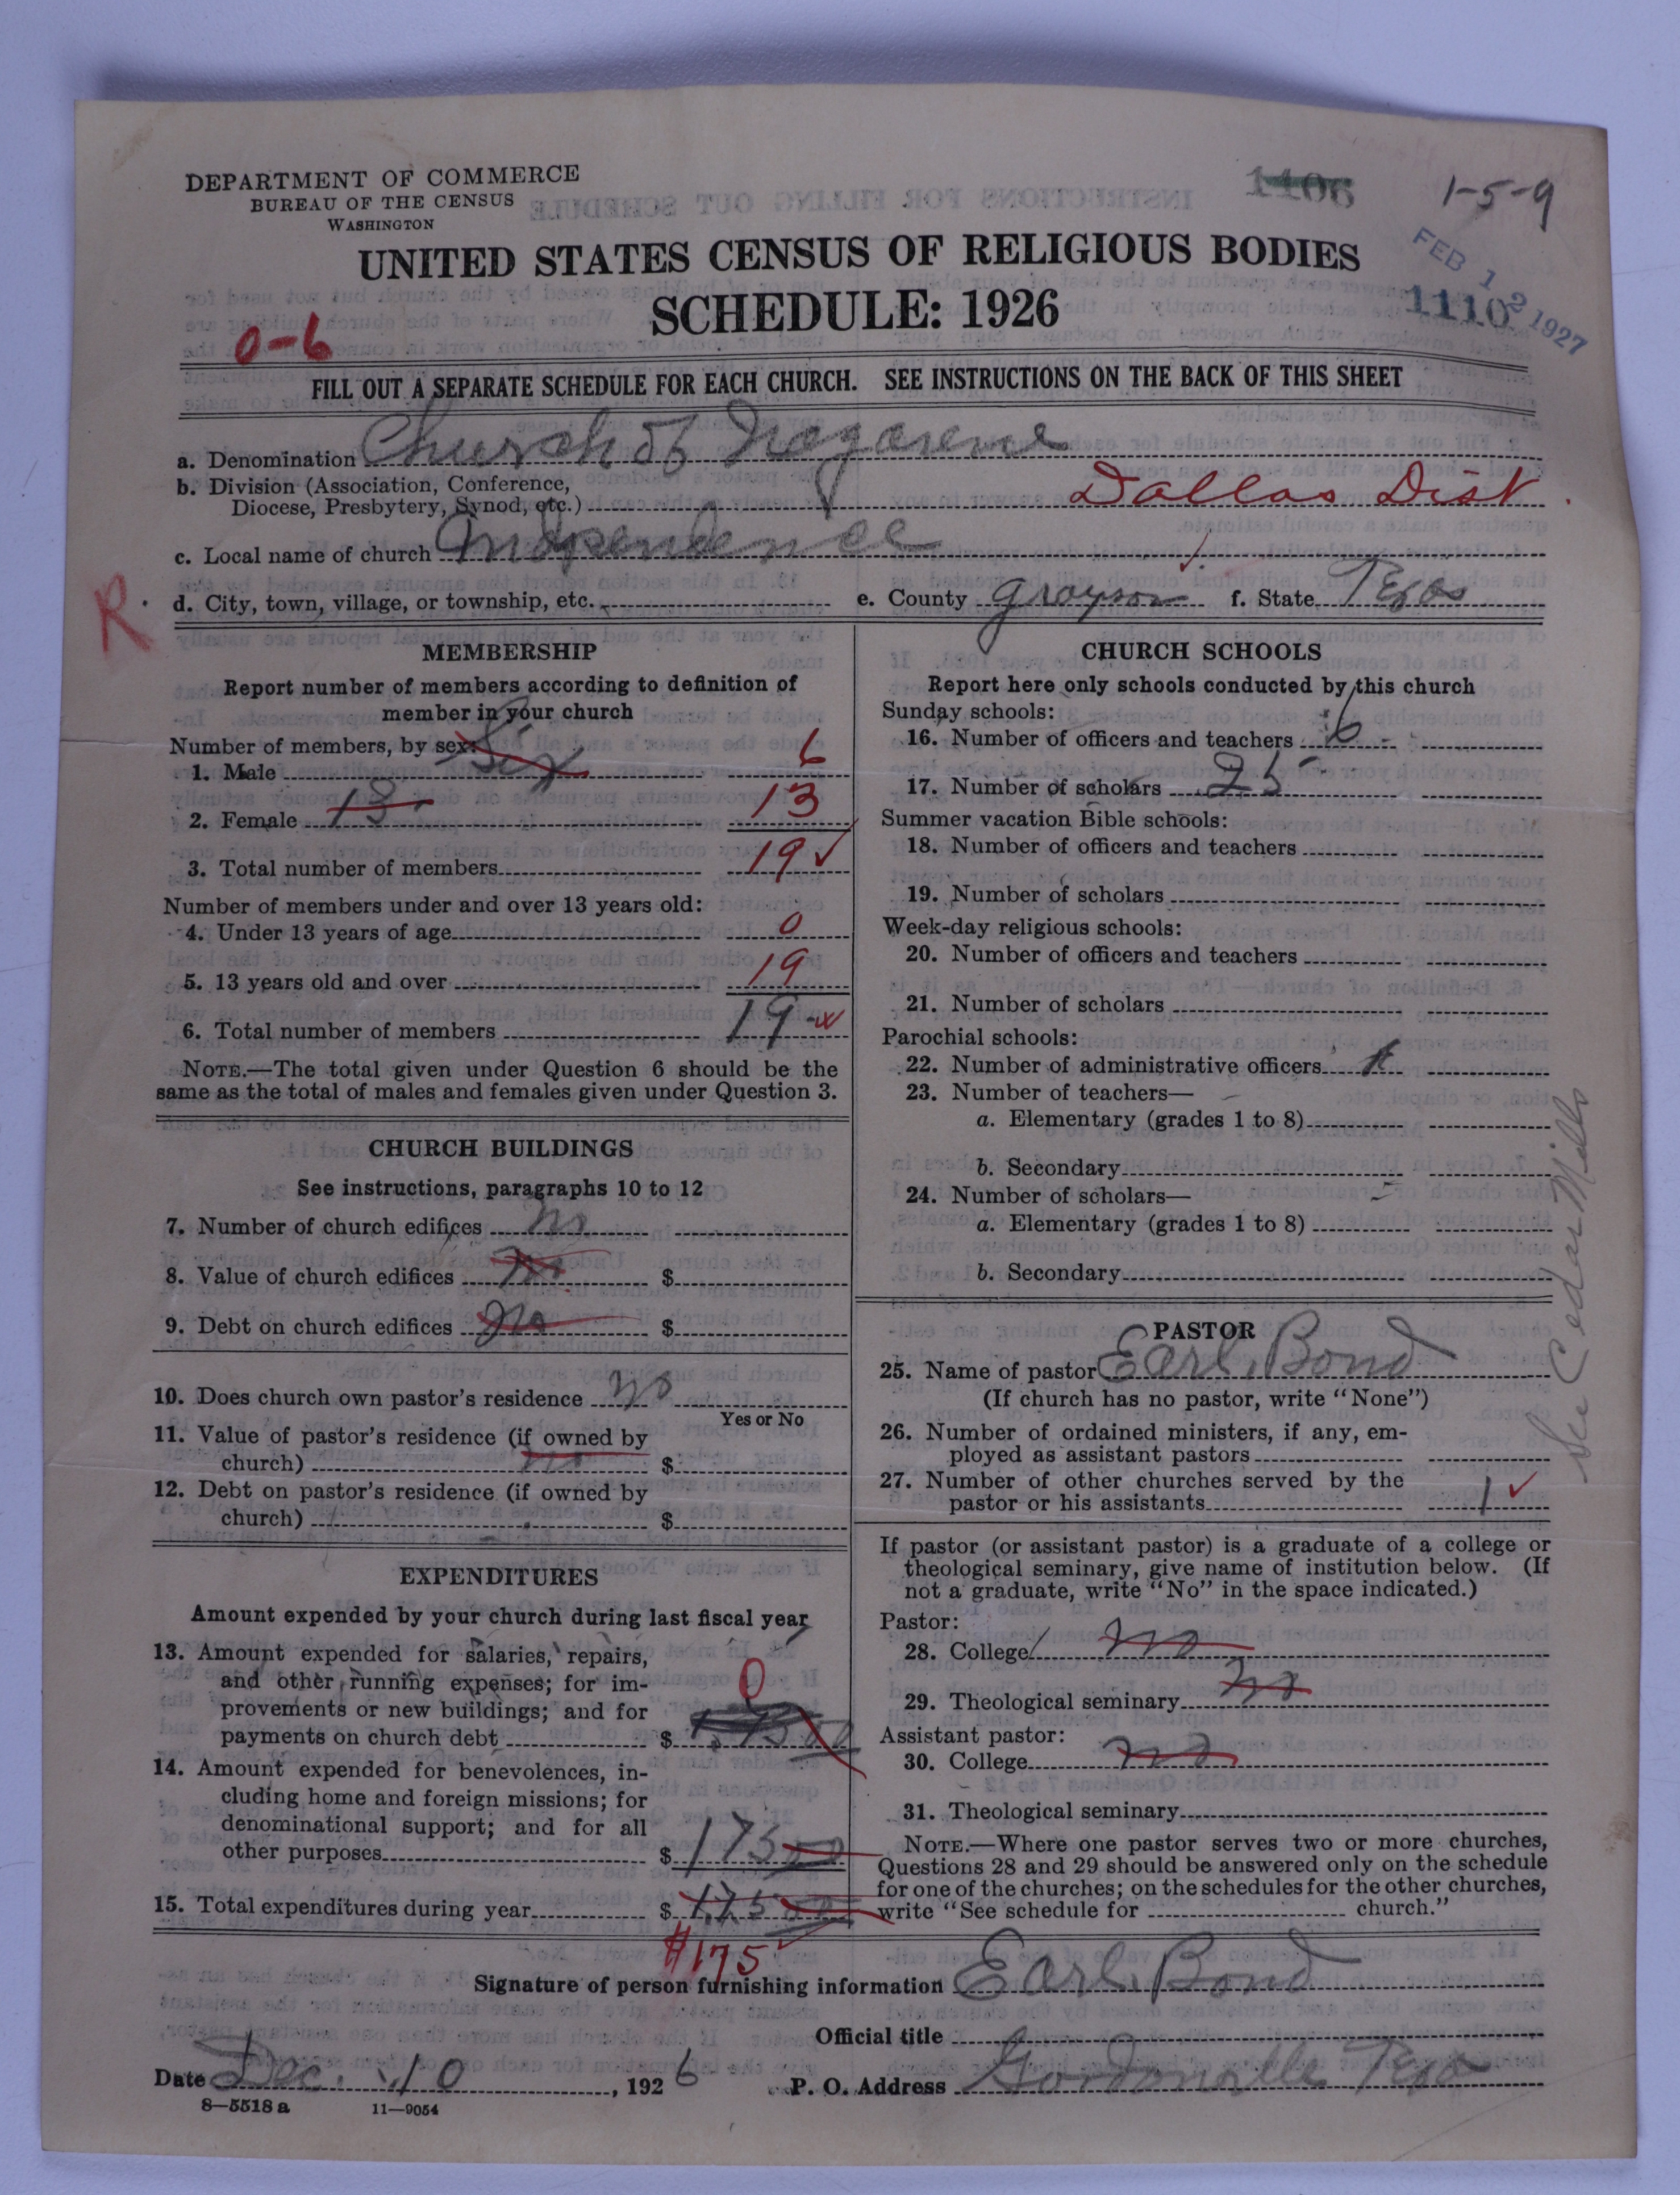 DEPARTMENT OF COMMERCE
BUREAU OF THE CENSUS
WASHINGTON
1106
1-5-9
UNITED STATES CENSUS OF RELIGIOUS BODIES
SCHEDULE: 1926
FEB 12 1927
1110
0-6
FILL OUT A SEPARATE SCHEDULE FOR EACH CHURCH. SEE INSTRUCTIONS ON THE BACK OF THIS SHEET
a. Denomination Church of Nazarene
b. Division (Association, Conference,
Diocese, Presbytery, Synod, etc.) Dallas Dist.
c. Local name of church Independence
R
d. City, town, village, or township, etc. e. County Grayson f. State Texas
MEMBERSHIP
Report number of members according to definition of
member in your church
Number of members, by sex:
1. Male Six 6
2. Female 13 13
3. Total number of members 19 ✓
Number of members under and over 13 years old:
4. Under 13 years of age 0
5. 13 years old and over 19
6. Total number of members 19
NOTE.—The total given under Question 6 should be the
same as the total of males and females given under Question 3.
CHURCH BUILDINGS
See instructions, paragraphs 10 to 12
7. Number of church edifices no
8. Value of church edifices no $
9. Debt on church edifices no $
10. Does church own pastor's residence no
Yes or No
11. Value of pastor's residence (if owned by
church) no $
12. Debt on pastor's residence (if owned by
church) $
EXPENDITURES
Amount expended by your church during last fiscal year
13. Amount expended for salaries, repairs,
and other running expenses; for im-
provements or new buildings; and for
payments on church debt $ 0
14. Amount expended for benevolences, in-
cluding home and foreign missions; for
denominational support; and for all
other purposes $ 175 00
15. Total expenditures during year $ 175 00
#175
CHURCH SCHOOLS
Report here only schools conducted by this church
Sunday schools:
16. Number of officers and teachers 6
17. Number of scholars 25
Summer vacation Bible schools:
18. Number of officers and teachers
19. Number of scholars
Week-day religious schools:
20. Number of officers and teachers
21. Number of scholars
Parochial schools:
22. Number of administrative officers
23. Number of teachers—
a. Elementary (grades 1 to 8)
b. Secondary
24. Number of scholars—
a. Elementary (grades 1 to 8)
b. Secondary
See Cedar Mills
PASTOR
25. Name of pastor Earl Bond
(If church has no pastor, write "None")
26. Number of ordained ministers, if any, em-
ployed as assistant pastors
27. Number of other churches served by the
pastor or his assistants 1 ✓
If pastor (or assistant pastor) is a graduate of a college or
theological seminary, give name of institution below. (If
not a graduate, write "No" in the space indicated.)
Pastor:
28. College no
29. Theological seminary no
Assistant pastor:
30. College no
31. Theological seminary
NOTE.—Where one pastor serves two or more churches,
Questions 28 and 29 should be answered only on the schedule
for one of the churches; on the schedules for the other churches,
write "See schedule for church."
Signature of person furnishing information Earl Bond
Official title
Date Dec. 10, 1926 P. O. Address Gordonville Texa
8—5518 a 11—9054